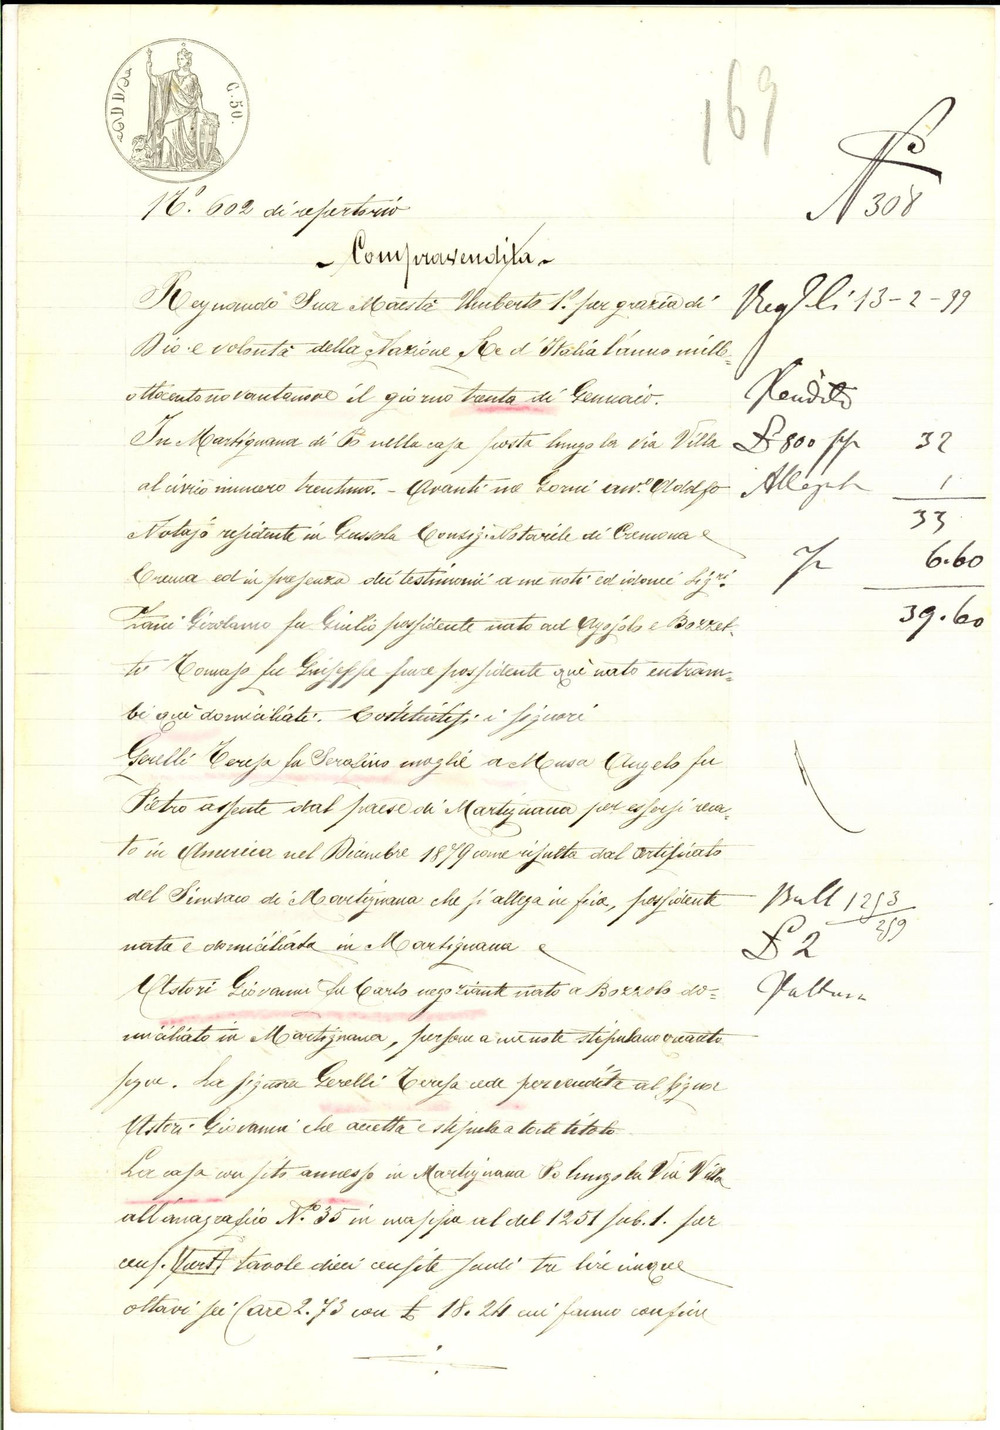 C. 50.
169
N° 308
N.° 602 di repertorio
Compravendita
Regnando Sua Maestà Umberto 1° per grazia di
Dio e volontà della Nazione Re d'Italia l'anno mille
ottocentonovantanove il giorno trenta di Gennaio.
In Martignana di Po nella casa posta lungo la via Villa
al civico numero trentuno. - Avanti me Gorni cav.e Adolfo
Notajo residente in Gussola Consig. Notarile di Cremona e
Crema ed in presenza dei testimonii a me noti ed idonei Sig.ri
Zani Girolamo fu Giulio possidente nato ad e Bozzet-
ti Tomaso fu Giuseppe pure possidente qui nato entram-
bi qui domiciliati. Costituitisi i signori
Gerelli Teresa fu Serafino moglie a Musa Angelo fu
Pietro assente dal paese di Martignana per essersi reca-
to in America nel Dicembre 1879 come risulta dal certificato
del Sindaco di Martignana che si allega in fine, possidente
nata e domiciliata in Martignana e
Astori Giovanni fu Carlo negoziante nato a Bozzolo do-
miciliato in Martignana, persone a me note stipulano quanto
segue. La signora Gerelli Teresa cede per vendita al signor
Astori Giovanni che accetta e stipula a tale titolo
La casa con sito annesso in Martignana Po lungo la Via Villa
all'anagrafico N.° 35 in mappa al del 1251 sub. 1. per
cens. Pert. tavole dieci censite scudi tre lire cinque
ottavi sei (are 2.73 con £ 18.24 cui fanno confine
Reg. li 13-2-99
Vendita
£ 800 pp 32
Allegato 1
33
6.60
39.60
Boll 1253
259
£ 2